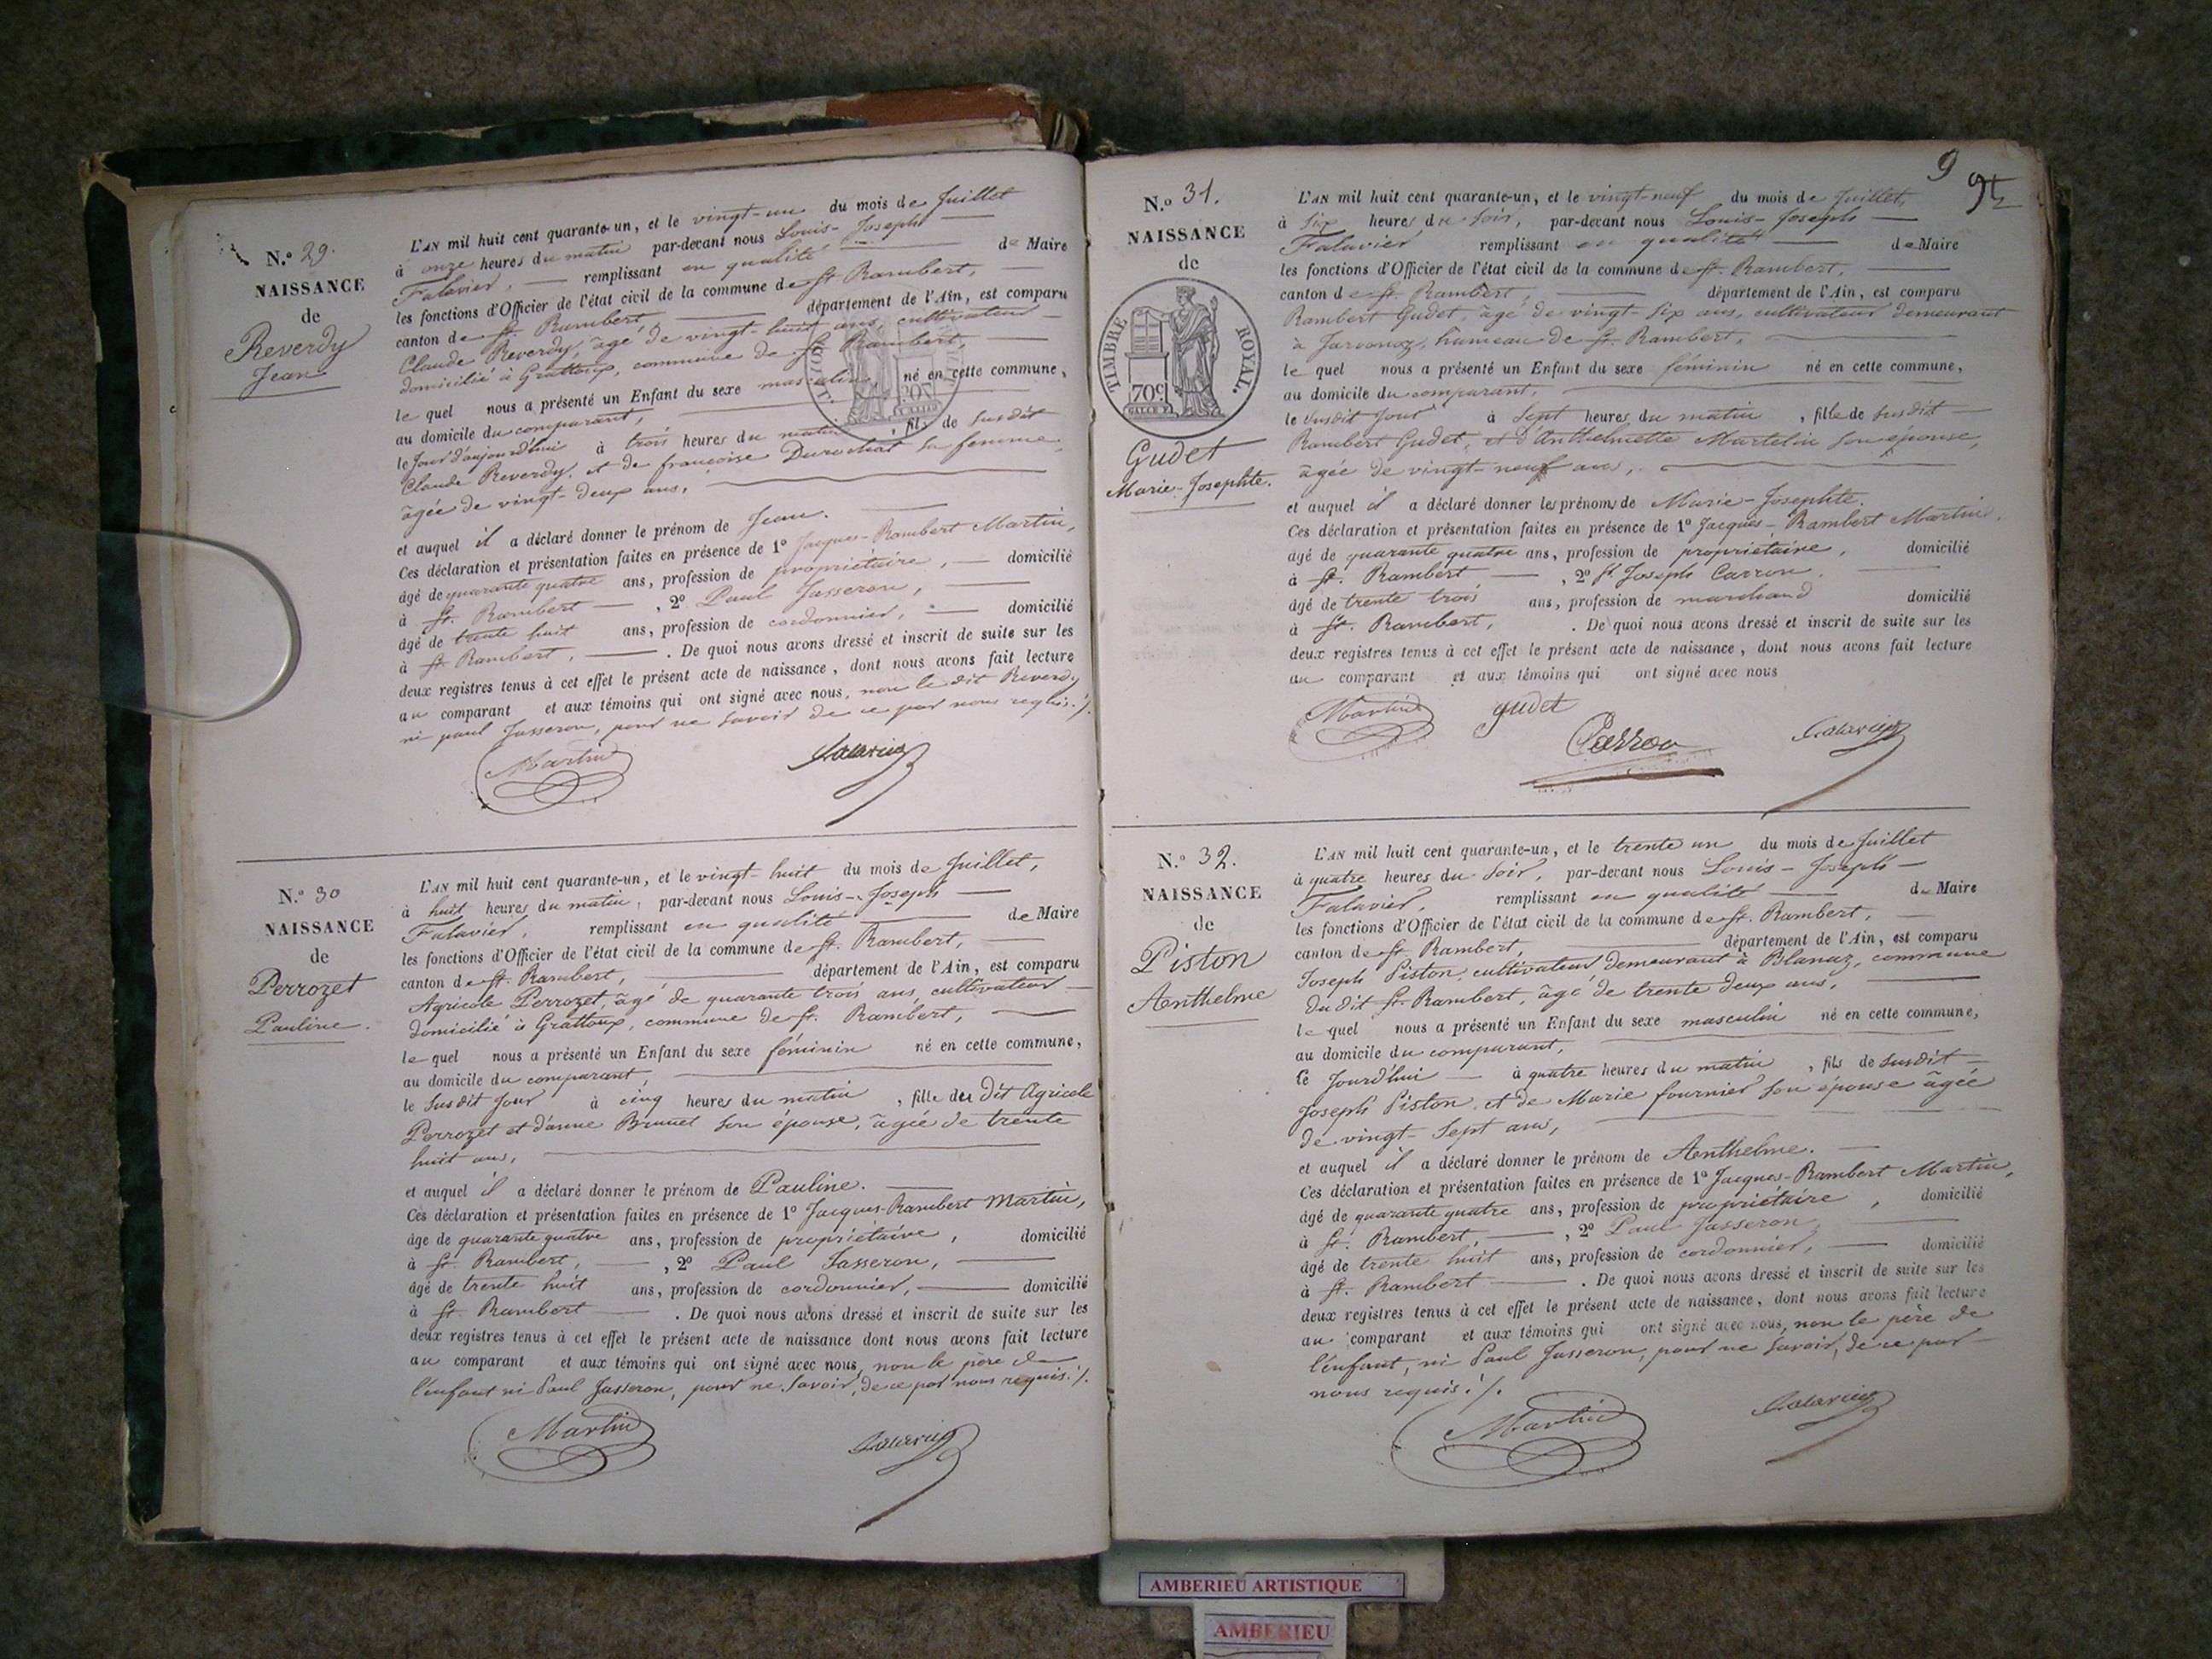 N.° 29.
NAISSANCE
de
Reverdy
Jean
L'AN mil huit cent quarante-un, et le vingt-un du mois de Juillet
à onze heures du matin par-devant nous Louis-Joseph
Falavier, remplissant en qualité de Maire
les fonctions d'Officier de l'état civil de la commune de St. Rambert,
canton de St. Rambert département de l'Ain, est comparu
Claude Reverdy, âgé de vingt-huit ans, cultivateur
domicilié à Grattoux, commune de St. Rambert,
le quel nous a présenté un Enfant du sexe masculin, né en cette commune,
au domicile du comparant,
le Jour d'aujourd'hui à trois heures du matin, fils de susdit
Claude Reverdy, et de françoise Durochat sa femme
âgée de vingt-deux ans,
et auquel il a déclaré donner le prénom de Jean.
Ces déclaration et présentation faites en présence de 1° Jacques-Rambert Martin,
âgé de quarante quatre ans, profession de propriétaire, domicilié
à St. Rambert, 2° Paul Jasseron,
âgé de trente huit ans, profession de cordonnier, domicilié
à St. Rambert, . De quoi nous avons dressé et inscrit de suite sur les
deux registres tenus à cet effet le présent acte de naissance, dont nous avons fait lecture
au comparant et aux témoins qui ont signé avec nous, non le dit Reverdy
ni paul Jasseron, pour ne savoir de ce par nous requis ./.
Martin Falavier
N.° 30
NAISSANCE
de
Perrozet
Pauline.
L'AN mil huit cent quarante-un, et le vingt-huit du mois de Juillet,
à huit heures du matin, par-devant nous Louis-Joseph
Falavier, remplissant en qualité de Maire
les fonctions d'Officier de l'état civil de la commune de St. Rambert,
canton de St. Rambert, département de l'Ain, est comparu
Agricole Perrozet, âgé de quarante trois ans, cultivateur
domicilié à Grattoux, commune de St. Rambert,
le quel nous a présenté un Enfant du sexe féminin né en cette commune,
au domicile du comparant,
le susdit jour à cinq heures du matin, fille du dit Agricole
Perrozet et d'anne Brunet son épouse, âgée de trente
huit ans,
et auquel il a déclaré donner le prénom de Pauline.
Ces déclaration et présentation faites en présence de 1° Jacques-Rambert Martin,
âgé de quarante quatre ans, profession de propriétaire, domicilié
à St. Rambert, , 2° Paul Jasseron,
âgé de trente huit ans, profession de cordonnier, domicilié
à St. Rambert . De quoi nous avons dressé et inscrit de suite sur les
deux registres tenus à cet effet le présent acte de naissance dont nous avons fait lecture
au comparant et aux témoins qui ont signé avec nous, non le père de
l'enfant ni Paul Jasseron, pour ne savoir, de ce par nous requis ./.
Martin Falavier
9
N.° 31.
NAISSANCE
de
TIMBRE ROYAL.
70c
Gudet
Marie-Josephte.
L'AN mil huit cent quarante-un, et le vingt-neuf du mois de Juillet,
à six heures du soir, par-devant nous Louis-Joseph
Falavier remplissant en qualité de Maire
les fonctions d'Officier de l'état civil de la commune de St. Rambert,
canton de St. Rambert, département de l'Ain, est comparu
Rambert Gudet, âgé de vingt-six ans, cultivateur demeurant
à Javornoz, hameau de St. Rambert,
le quel nous a présenté un Enfant du sexe féminin né en cette commune,
au domicile du comparant,
le susdit jour à sept heures du matin, fille de susdit
Rambert Gudet, et d'Anthelmette Martelin son épouse,
âgée de vingt-neuf ans,
et auquel il a déclaré donner les prénoms de Marie-Josephte.
Ces déclaration et présentation faites en présence de 1° Jacques-Rambert Martin,
âgé de quarante quatre ans, profession de propriétaire, domicilié
à St. Rambert , 2° Joseph Carron,
âgé de trente trois ans, profession de marchand domicilié
à St. Rambert, . De quoi nous avons dressé et inscrit de suite sur les
deux registres tenus à cet effet le présent acte de naissance, dont nous avons fait lecture
au comparant et aux témoins qui ont signé avec nous
Martin gudet Carron Falavier
N.° 32.
NAISSANCE
de
Piston
Anthelme
L'AN mil huit cent quarante-un, et le trente un du mois de Juillet
à quatre heures du soir, par-devant nous Louis-Joseph
Falavier, remplissant en qualité de Maire
les fonctions d'Officier de l'état civil de la commune de St. Rambert,
canton de St. Rambert, département de l'Ain, est comparu
Joseph Piston, cultivateur, demeurant à Blanaz, commune
du dit St. Rambert, âgé de trente deux ans,
le quel nous a présenté un Enfant du sexe masculin né en cette commune,
au domicile du comparant,
ce Jourd'hui à quatre heures du matin, fils de susdit
Joseph Piston, et de Marie fournier son épouse âgée
de vingt-sept ans,
et auquel il a déclaré donner le prénom de Anthelme.
Ces déclaration et présentation faites en présence de 1° Jacques-Rambert Martin,
âgé de quarante quatre ans, profession de propriétaire, domicilié
à St. Rambert, , 2° Paul Jasseron,
âgé de trente huit ans, profession de cordonnier, domicilié
à St. Rambert . De quoi nous avons dressé et inscrit de suite sur les
deux registres tenus à cet effet le présent acte de naissance, dont nous avons fait lecture
au comparant et aux témoins qui ont signé avec nous, non le père de
l'enfant, ni Paul Jasseron, pour ne savoir, de ce par
nous requis ./.
Martin Falavier
AMBERIEU ARTISTIQUE
AMBERIEU